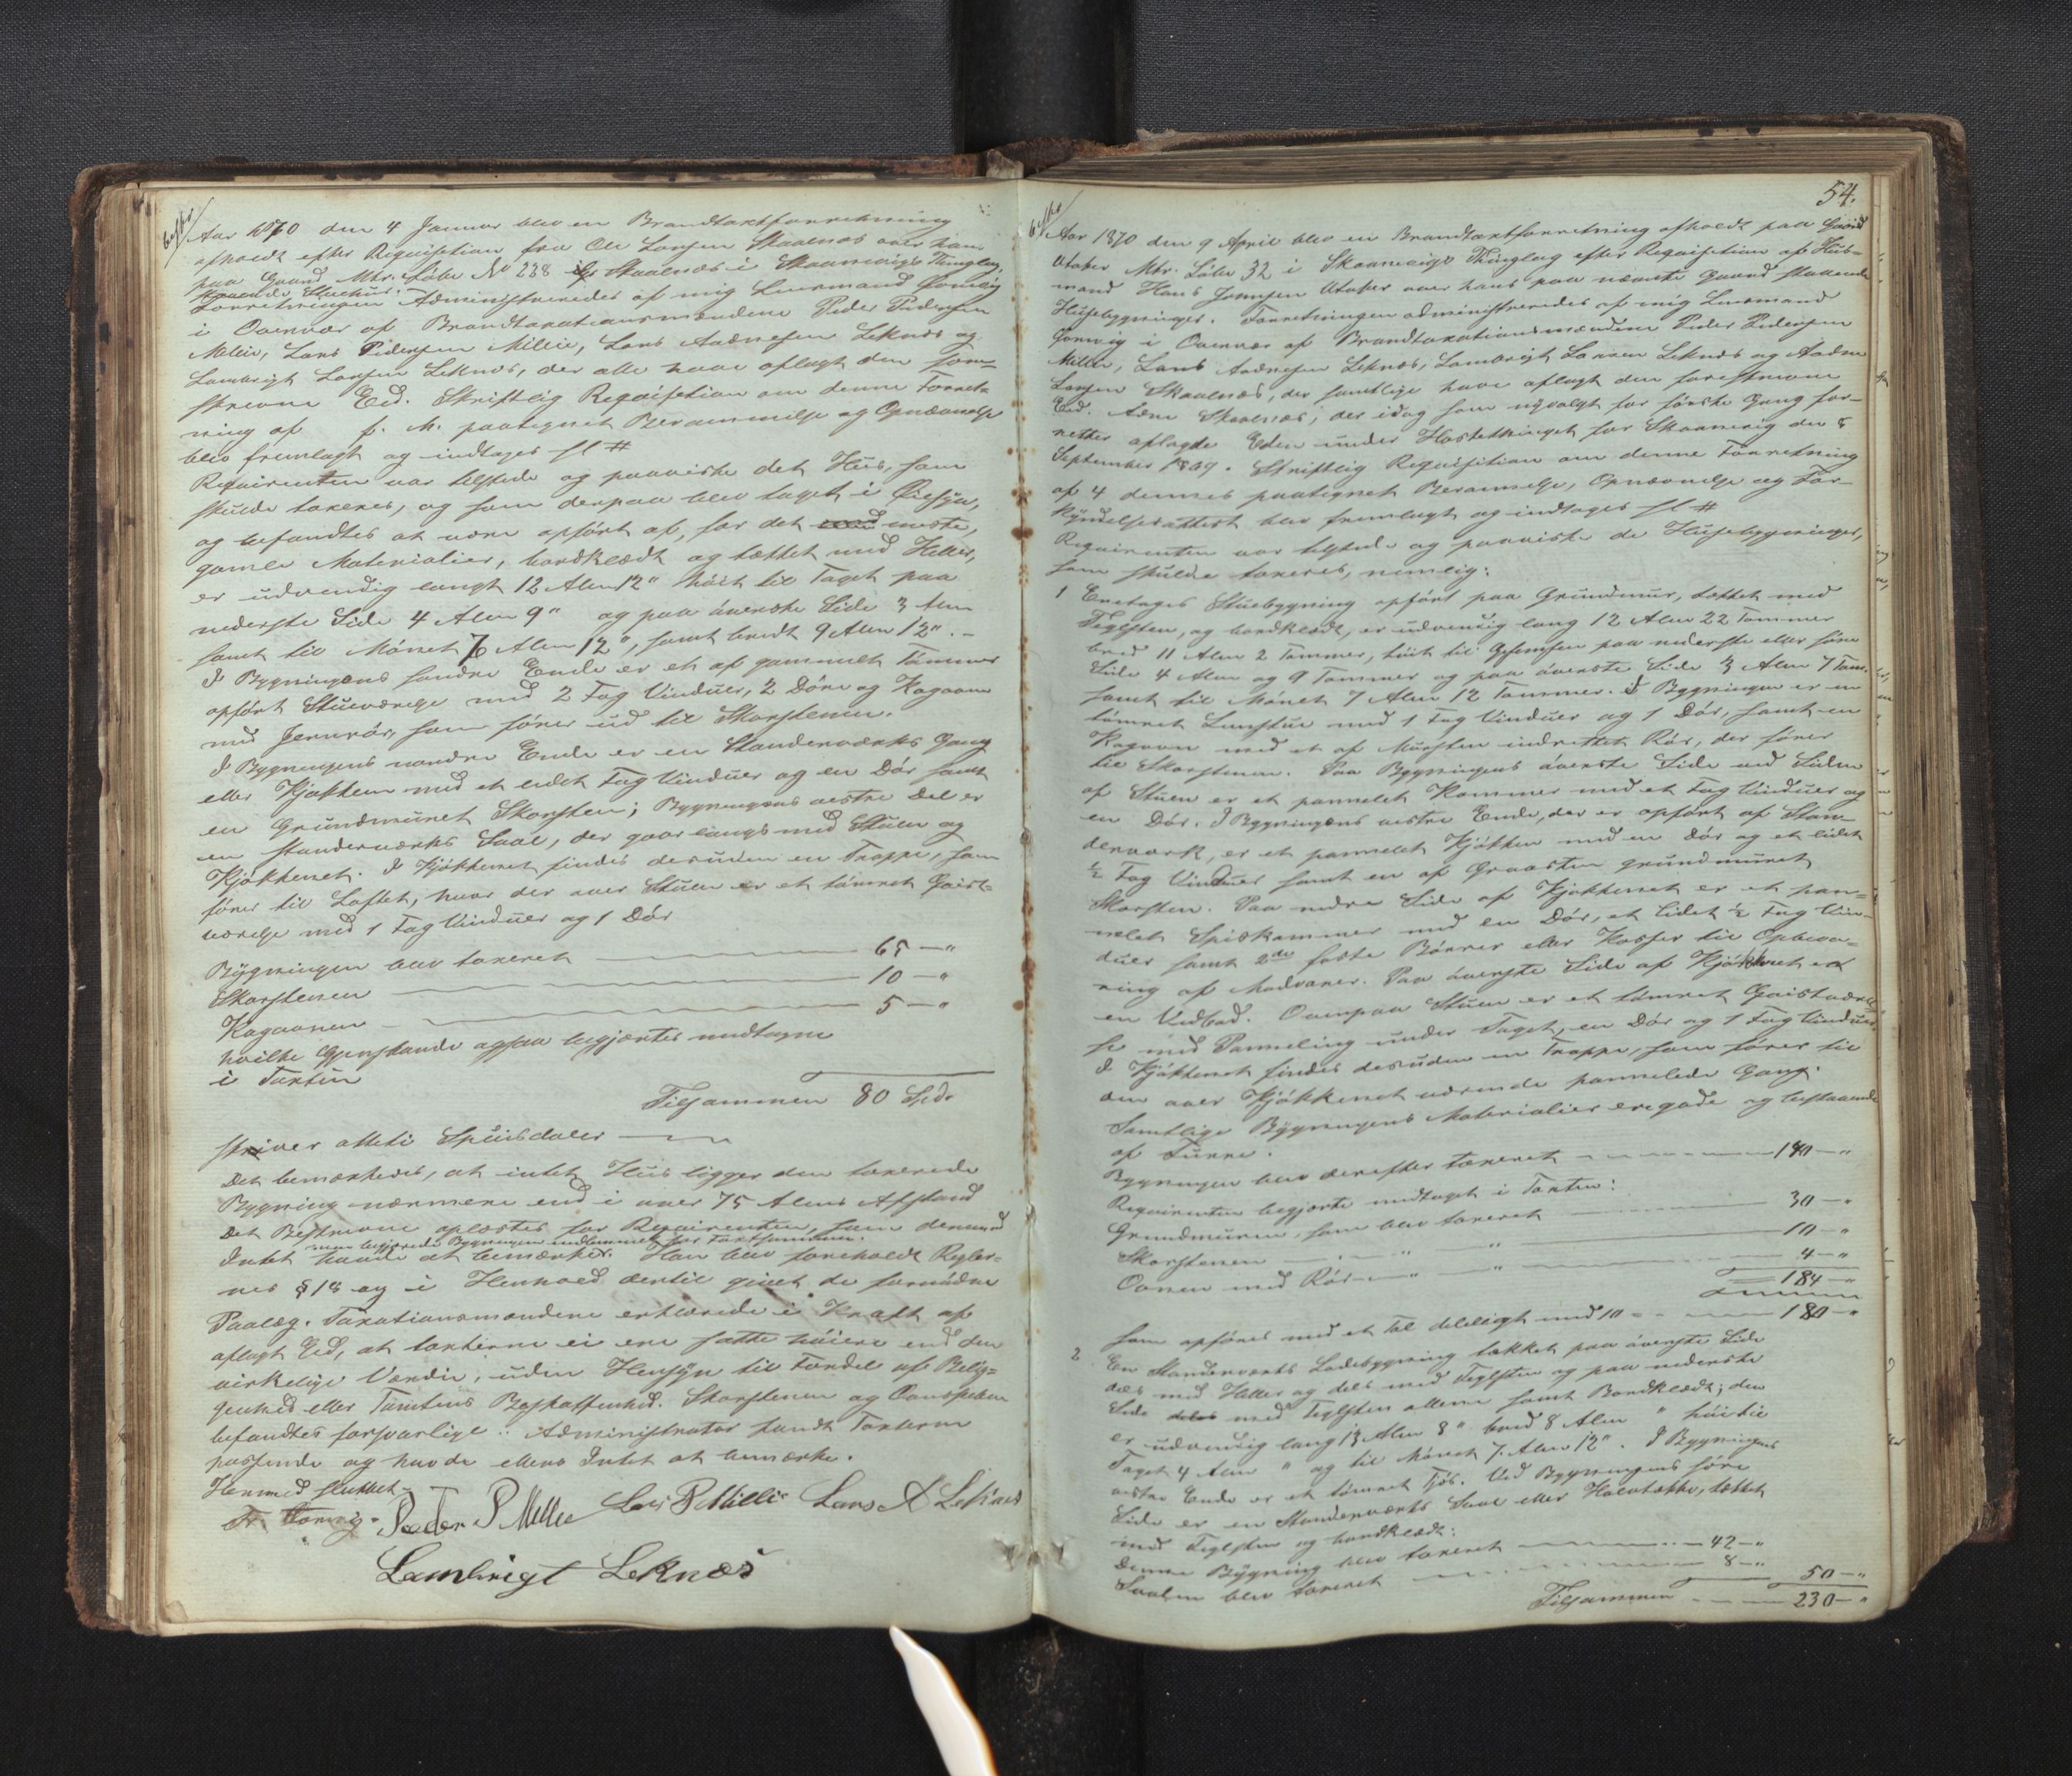 Aar 1870 den 4 Januar blev en Brandtaxtforretning
afholdt efter Requisition fra Ole Larsen Skaalnes over hans
paa Gaard Mtr. Løbe No 238 Skaalnes i Skaanevigs Thinglag
staaende Stuehus.
Forretningen Administreredes af mig Lensmand
i Overvær af Brandtaxationsmændene Peder Pedersen
Millie, Lars Pedersen Millie, Lars Aadnesen Leknes og
Lambrigt Larsen Leknes, der alle have aflagt den fore-
skrevne Eed. Skriftlig Requisition om denne Forret-
ning af f. M. paategnet Berammelse og Opnævnelse
blev fremlagt og indtages sl #
Requirenten var tilstede og paaviste det Huus, som
skulde taxeres, og som derpaa blev taget i Øiesyn,
og befandtes at være opført af, for det meste,
gamle Materialier, bordklædt og tækket med Heller,
er udvendig langt 12 Alen 12" høit til Taget paa
nederste Side 4 Alen 9" og paa øverste Side 3 Alen
samt til Mønet 7 Alen 12", samt bredt 9 Alen 12". -
I Bygningens søndre Ende er et af gammelt Tømmer
opført Stueværelse med 2 Fag Vinduer, 2 Døre og Kagoven
med Jernrør, som fører ud til Skorstenen.
I Bygningens nordre Ende er en Standerværks Gang
eller Kjøkken med et lidet Fag Vinduer og en Dør samt
en Grundmuret Skorsten; Bygningens vestre Del er
en standerværks Sval, der gaar langs med Stuen og
Kjøkkenet. I Kjøkkenet findes desuden en Trappe, som
fører til Loftet, hvor der over Stuen er et tømret Gaist-
værelse med 1 Fag Vinduer og 1 Dør
Bygningen blev taxeret 65 - "
Skorstenen 10 - "
Kagovnen 5 - "
hvilke Gjenstande ogsaa begjærtes medtagne
i Taxten
Tilsammen 80 Spd.
skriver otteti Speciedaler
Det bemærkedes, at intet Huus ligger den taxerede
Bygning nærmere end i over 75 Alens Afstand
Det Beskrevne oplæstes for Requirenten, som dermed
men begjærede Bygningen indlemmet for Taxtsummen.
Intet havde at bemærke. Han blev foreholdt Regler-
nes § 18 og i Henhold dertil givet de fornødne
Paalæg. Taxationsmændene erklærede i Kraft af
aflagt Eed, at taxterne ei ere satte høiere end den
virkelige Værdie, uden Hensyn til Fordel af Belig-
genhed eller Tomtens Beskaffenhed. Skorstenen og Ovnspiben
befandtes forsvarlige. Administrator fandt Taxterne
passende og havde ellers Intet at bemærke.
Hermed sluttet
Peder P Millie Lars P Millie Lars A Leknes
Lambrigt Leknæs
54.
Aar 1870 den 9 April blev en Brandtaxtforretning afholdt paa Gaard
Utaker Mtr. Løbe 32 i Skaanevigs Thinglag efter Requisition af Huus-
mand Hans Johnsen Utaker over hans paa nævnte Gaard staaende
Husebygninger. Forretningen administreredes af mig Lensmand
i Overvær af Brandtaxationsmændene Peder Pedersen
Millie, Lars Aadnesen Leknes, Lambrigt Larsen Leknes og Aadne
Larsen Skaalnes, der samtlige have aflagt den foreskrevne
Eed. Adne Skaalnes, der idag som nyvalgt for første Gang for-
retter aflagde Eden under Høstethinget for Skaanevig den 8
September 1869. Skriftlig Requisition om denne Forretning
af 4 dennes paategnet Berammelse, Opnævnelse og For-
kyndelsesattest blev fremlagt og indtages sl #
Requirenten var tilstede og paaviste de Husebygninger,
som skulde taxeres, nemlig:
1 Eenetages Stuebygning opført paa Grundmur, tækket med
Teglsten, og bordklædt, er udvendig lang 12 Alen 22 Tommer
bred 11 Alen 2 Tommer, høit til Gesimsen paa nederste eller søre
Side 4 Alen og 9 Tommer og paa øverste Side 3 Alen 7 Tom.
samt til Mønet 7 Alen 12 Tommer. I Bygningen er en
tømret Stue med 1 Fag Vinduer og 1 Dør, samt en
Kagovn med et af Mursten indrettet Rør, der fører
til Skorstenen. Paa Bygningens øverste Side ved Siden
af Stuen er et pannelet Kammer med et Fag Vinduer og
en Dør. I Bygningens vestre Ende, der er opført af Stan-
derværk, er et pannelet Kjøkken med en Dør og et lidet
½ Fag Vinduer samt en af Graasten grundmuret
Skorsten. Paa nedre Side af Kjøkkenet er et pan-
nelet Spiskammer med en Dør, et lidet ½ Fag Vin-
duer samt 2de faste Bøxrer eller Kasser til Opbeva-
ring af Madvarer. Paa øverste Side af Kjøkkenet er
en Vedbod. Ovenpaa Stuen er et tømret Gaistværel-
se med Panneling under Taget, en Dør og 1 Fag Vinduer
I Kjøkkenet findes desuden en Trappe, som fører til
den over Kjøkkenet værende pannelede Gang.
Samtlige Bygningens Materialier ere gode og bestaaende
af Furre.
Bygningen blev derefter taxeret 140 - "
Requirenten begjærte medtaget i Taxten:
Grundmuren, som blev taxeret 30 - "
Skorstenen " " 10 - "
Ovnen med Rør " " 4 - "
184 - "
som opføres med et Tal deleligt med 10 180 - "
2 En Standerværks Ladebygning tækket paa øverste Side
dels med Heller og dels med Teglsten og paa nederste
Side med Teglsten allene samt Bordklædt; den
er udvendig lang 13 Alen 8" bred 8 Alen " høi til
Taget 4 Alen " og til Mønet 7 Alen 12". I Bygningens
vestre Ende er et tømret Fjøs. Ved Bygningens søre
Side er en Standerværks Sval eller Halvtække, tækket
med Teglsten og bordklædt:
Denne Bygning blev taxeret 42 - "
Svalen blev taxeret 8 - " 50 - "
Tilsammen 230 - "